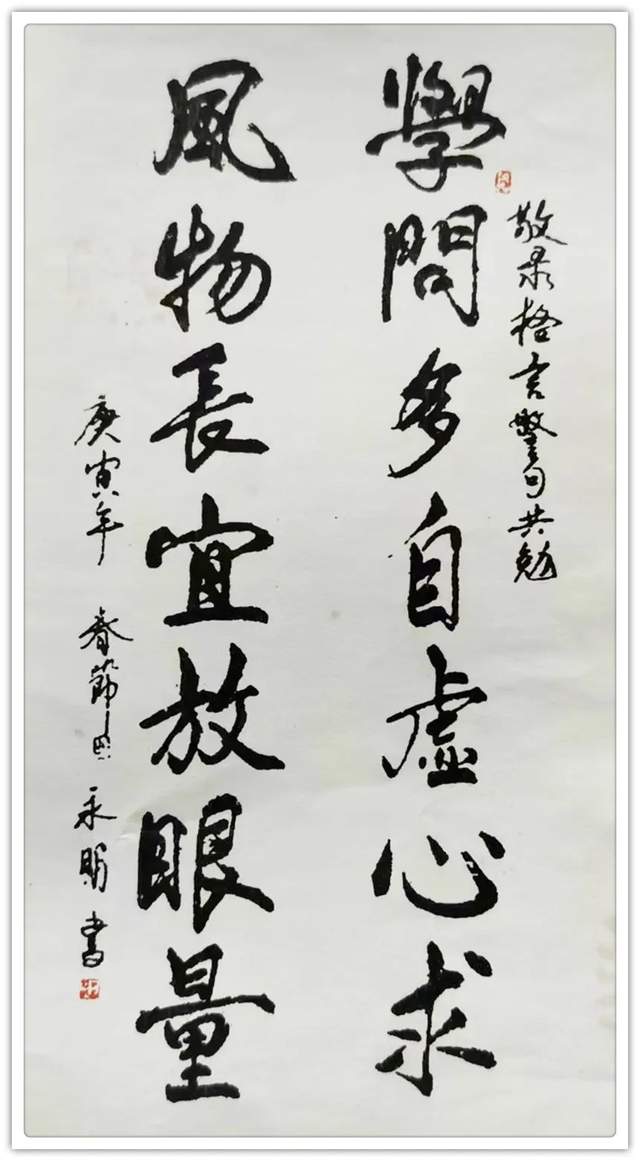 敬录格言警句共勉
學問多自虛心求
風物長宜放眼量
庚寅年 春節 永明書